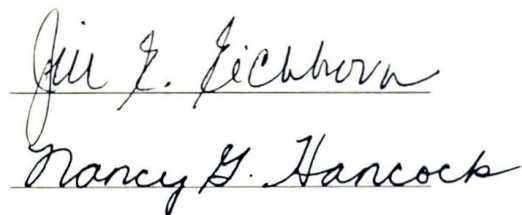 Jill E. Eichhorn
Nancy G. Hancock